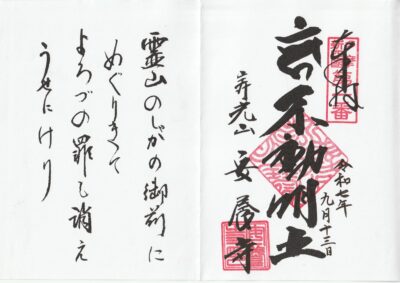 奉拝
不動明王
安養寺
令和七年
九月十三日
霊山のしがの御前に
めぐりきて
よろづの罪も消え
うせにけり